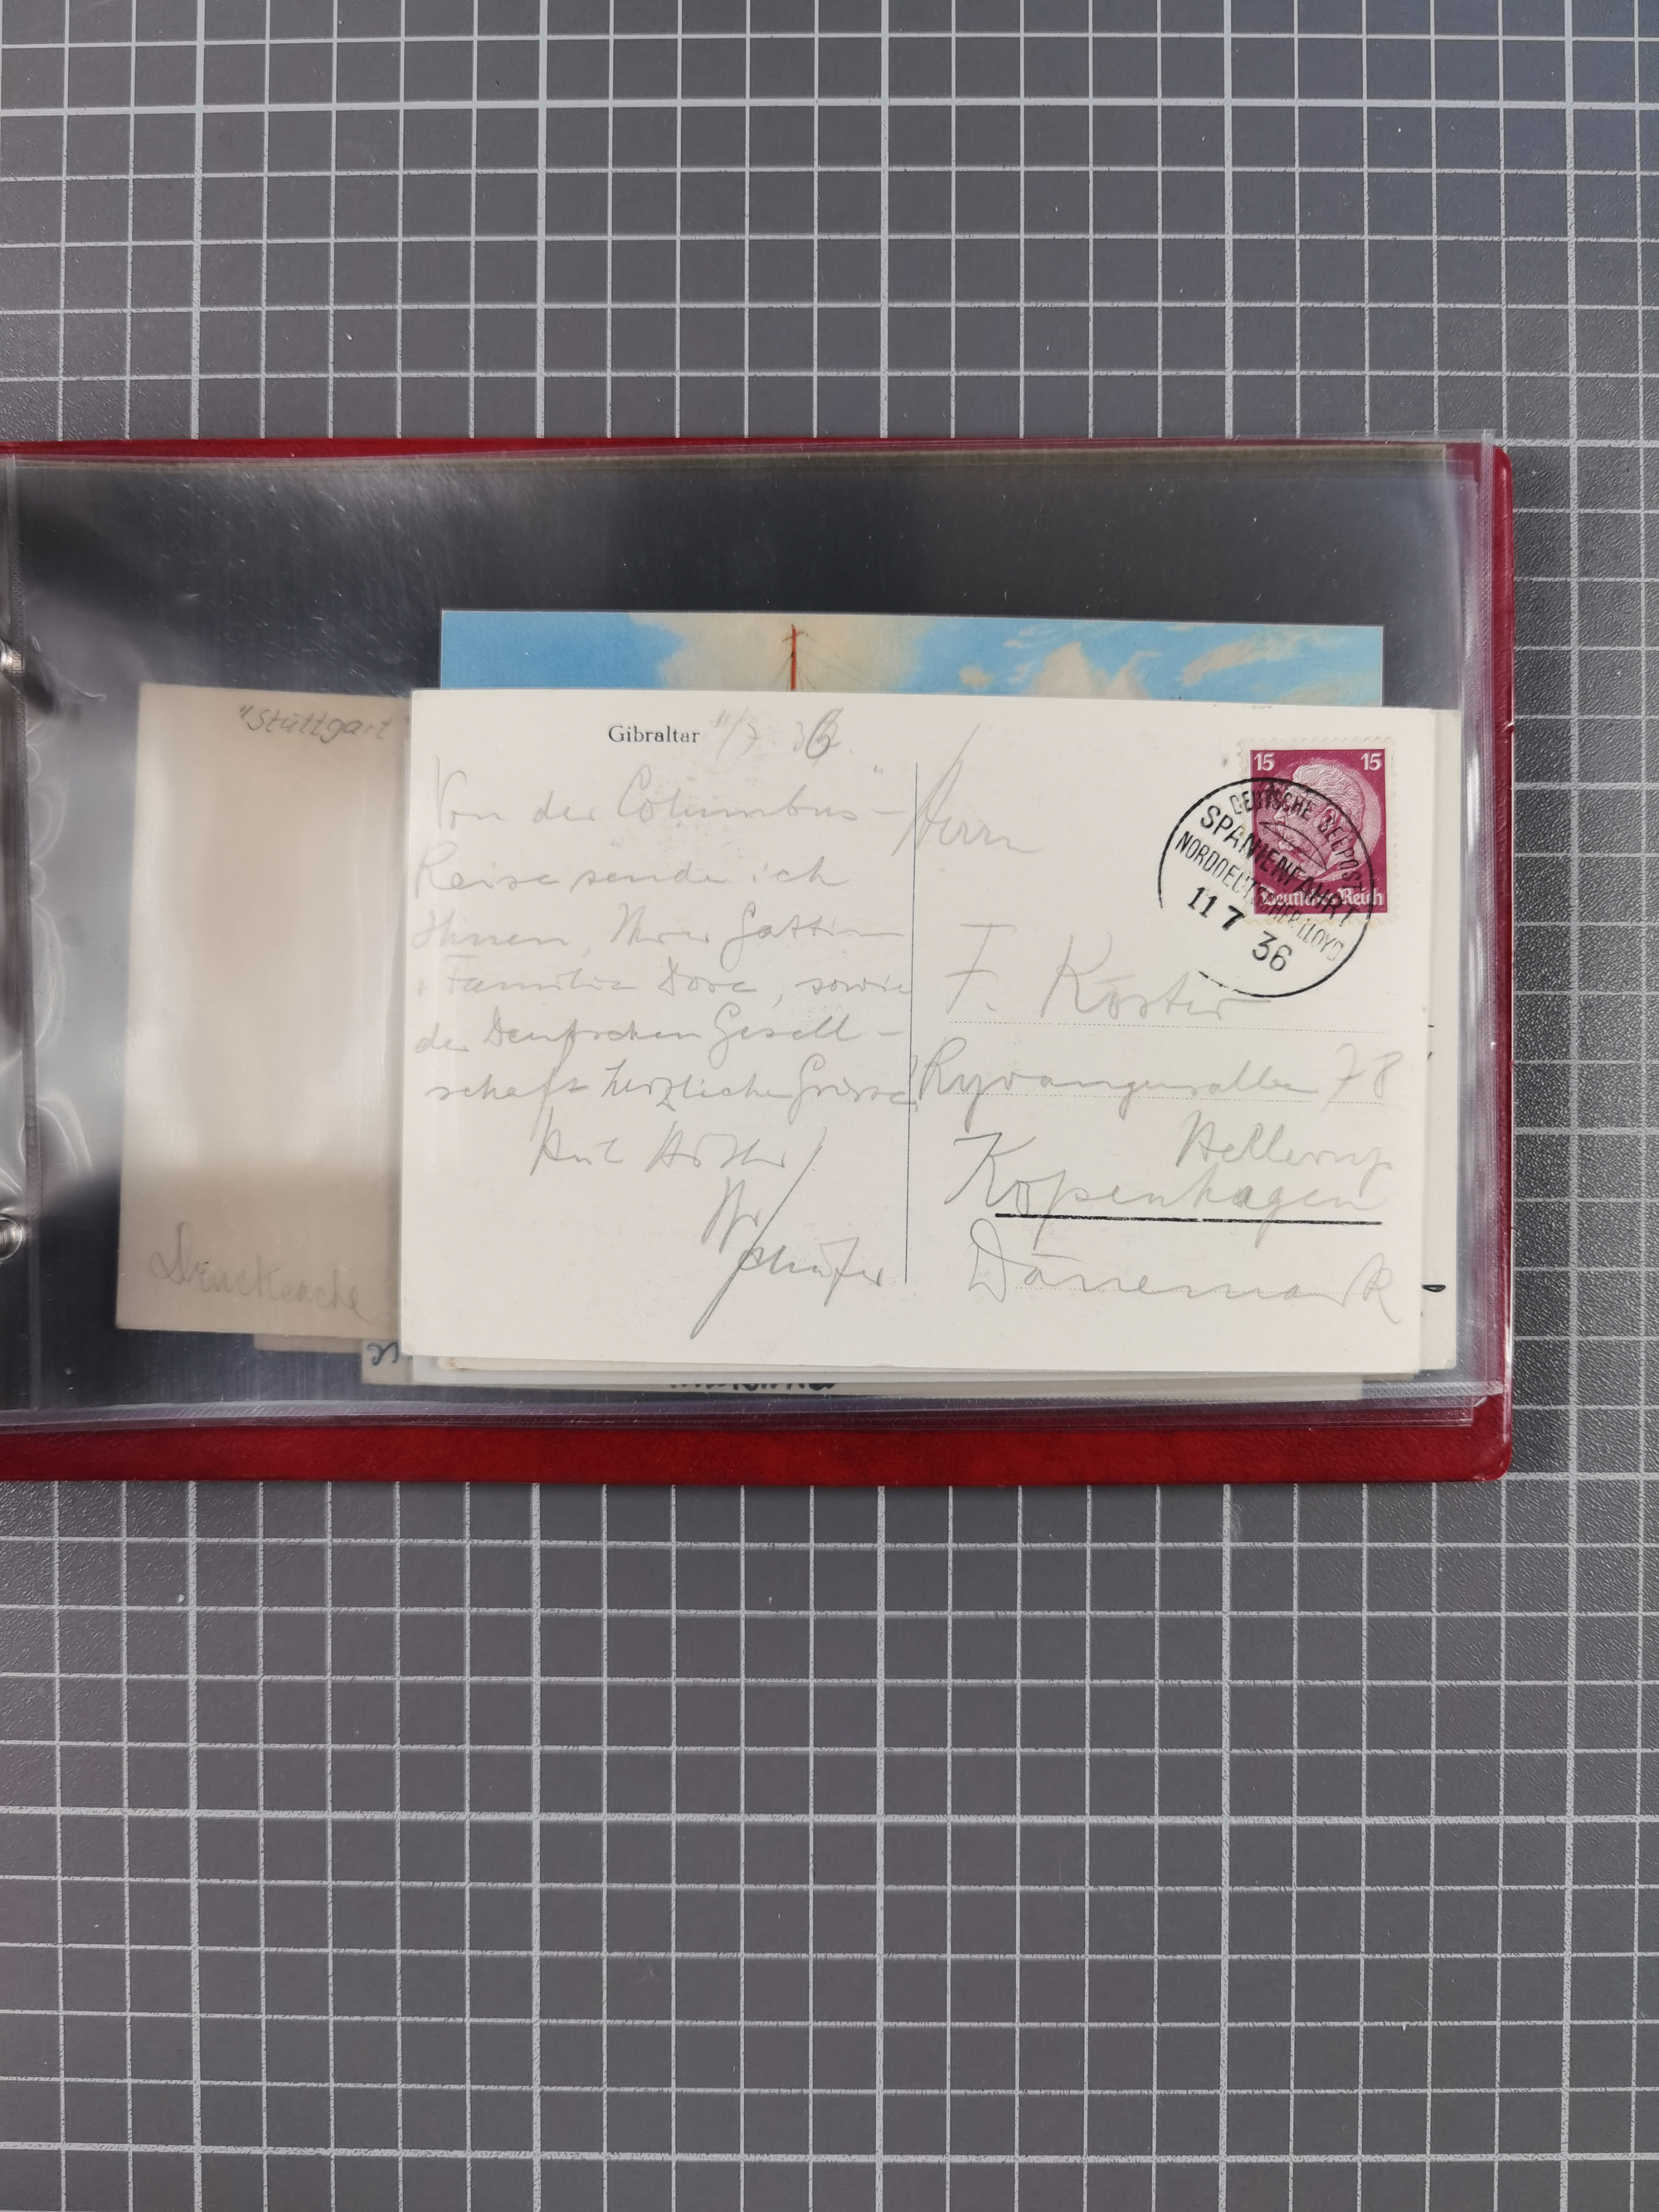 "Stuttgart"
Drucksache
Gibraltar 11/7. 36.
Von der "Columbus"-
Reise sende ich
Ihnen, Ihrer Gattin
+ Familie Dove, sowie
der Deutschen Gesell-
schaft herzliche Grüsse!
Schäfer
Herrn
F. Köster
Ryvangsallee 78
Hellerup
Kopenhagen
Dänemark
15 15
Deutsches Reich
DEUTSCHE SEEPOST
SPANIENFAHRT
NORDDEUTSCHER LLOYD
11 7 36